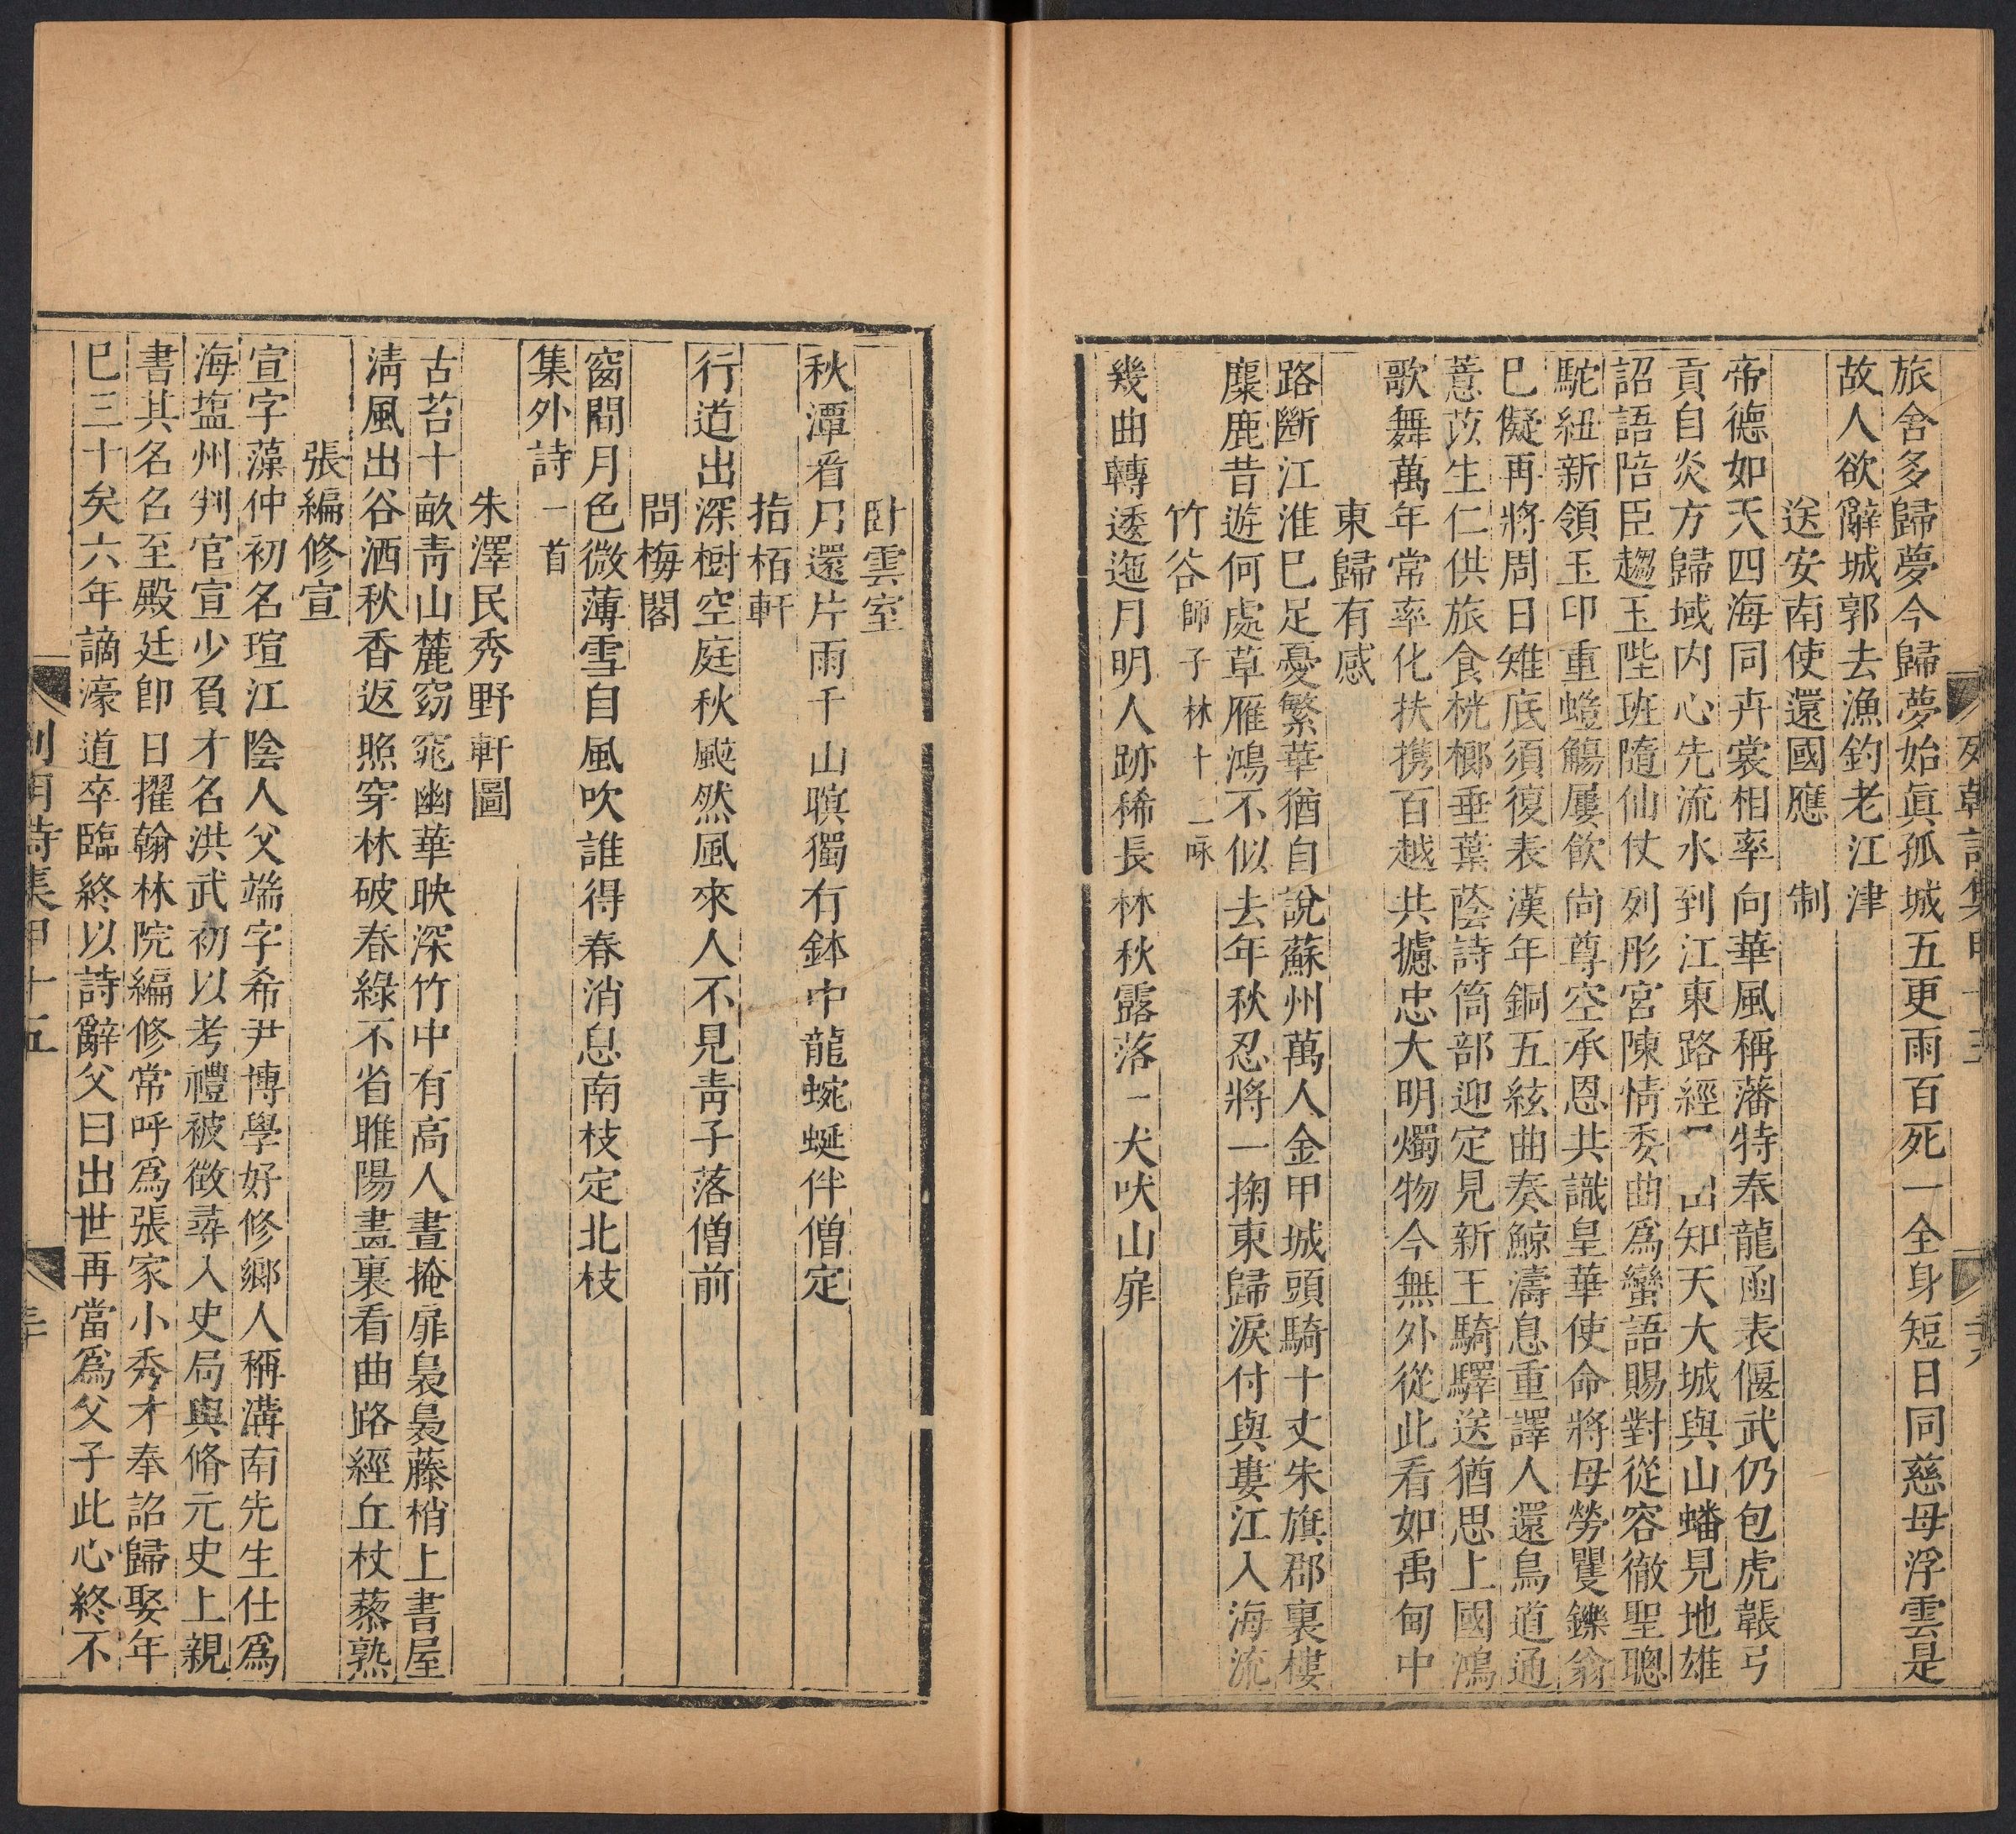 旅舍多歸夢今歸夢始眞孤城五更雨百死一全身短日同慈母浮雲是
故人欲辭城郭去漁釣老江津
送安南使還國應　制
帝德如天四海同卉裳相率向華風稱藩特奉龍函表偃武仍包虎韔弓
貢自炎方歸域内心先流水到江東路經山知天大城與山蟠見地雄
詔語陪臣趨玉陛班隨仙仗列彤宮陳情委曲爲蠻語賜對從容徹聖聰
駝紐新領玉印重蟾觴屢飲尚尊空承恩共識皇華使命將毋勞矍鑠翁
巳儗再將周日雉底須復表漢年銅五絃曲奏鯨濤息重譯人還鳥道通
薏苡生仁供旅食桄榔垂葉蔭詩筒部迎定見新王騎驛送猶思上國鴻
歌舞萬年常率化扶携百越共攄忠大明燭物今無外從此看如禹甸中
東歸有感
路斷江淮巳足憂繁華猶自說蘇州萬人金甲城頭騎十丈朱旗郡裏樓
麋鹿昔遊何處草雁鴻不似去年秋忍將一掬東歸淚付與婁江入海流
竹谷師子林十二咏
幾曲轉逶迤月明人跡稀長林秋露落一犬吠山扉
卧雲室
秋潭看月還片雨千山暝獨有鉢中龍蜿蜒伴僧定
指栢軒
行道出深樹空庭秋颼然風來人不見靑子落僧前
問梅閣
窗間月色微薄雪自風吹誰得春消息南枝定北枝
集外詩一首
朱澤民秀野軒圖
古苔十畝靑山麓窈窕幽華映深竹中有高人晝掩扉裊裊藤梢上書屋
淸風出谷洒秋香返照穿林破春綠不省睢陽畫裏看曲路經丘杖藜熟
張編修宣
宣字藻仲初名瑄江陰人父端字希尹博學好修鄉人稱溝南先生仕爲
海塩州判官宣少負才名洪武初以考禮被徵尋入史局與脩元史上親
書其名名至殿廷卽日擢翰林院編修常呼爲張家小秀才奉詔歸娶年
巳三十矣六年謫濠道卒臨終以詩辭父曰出世再當爲父子此心終不